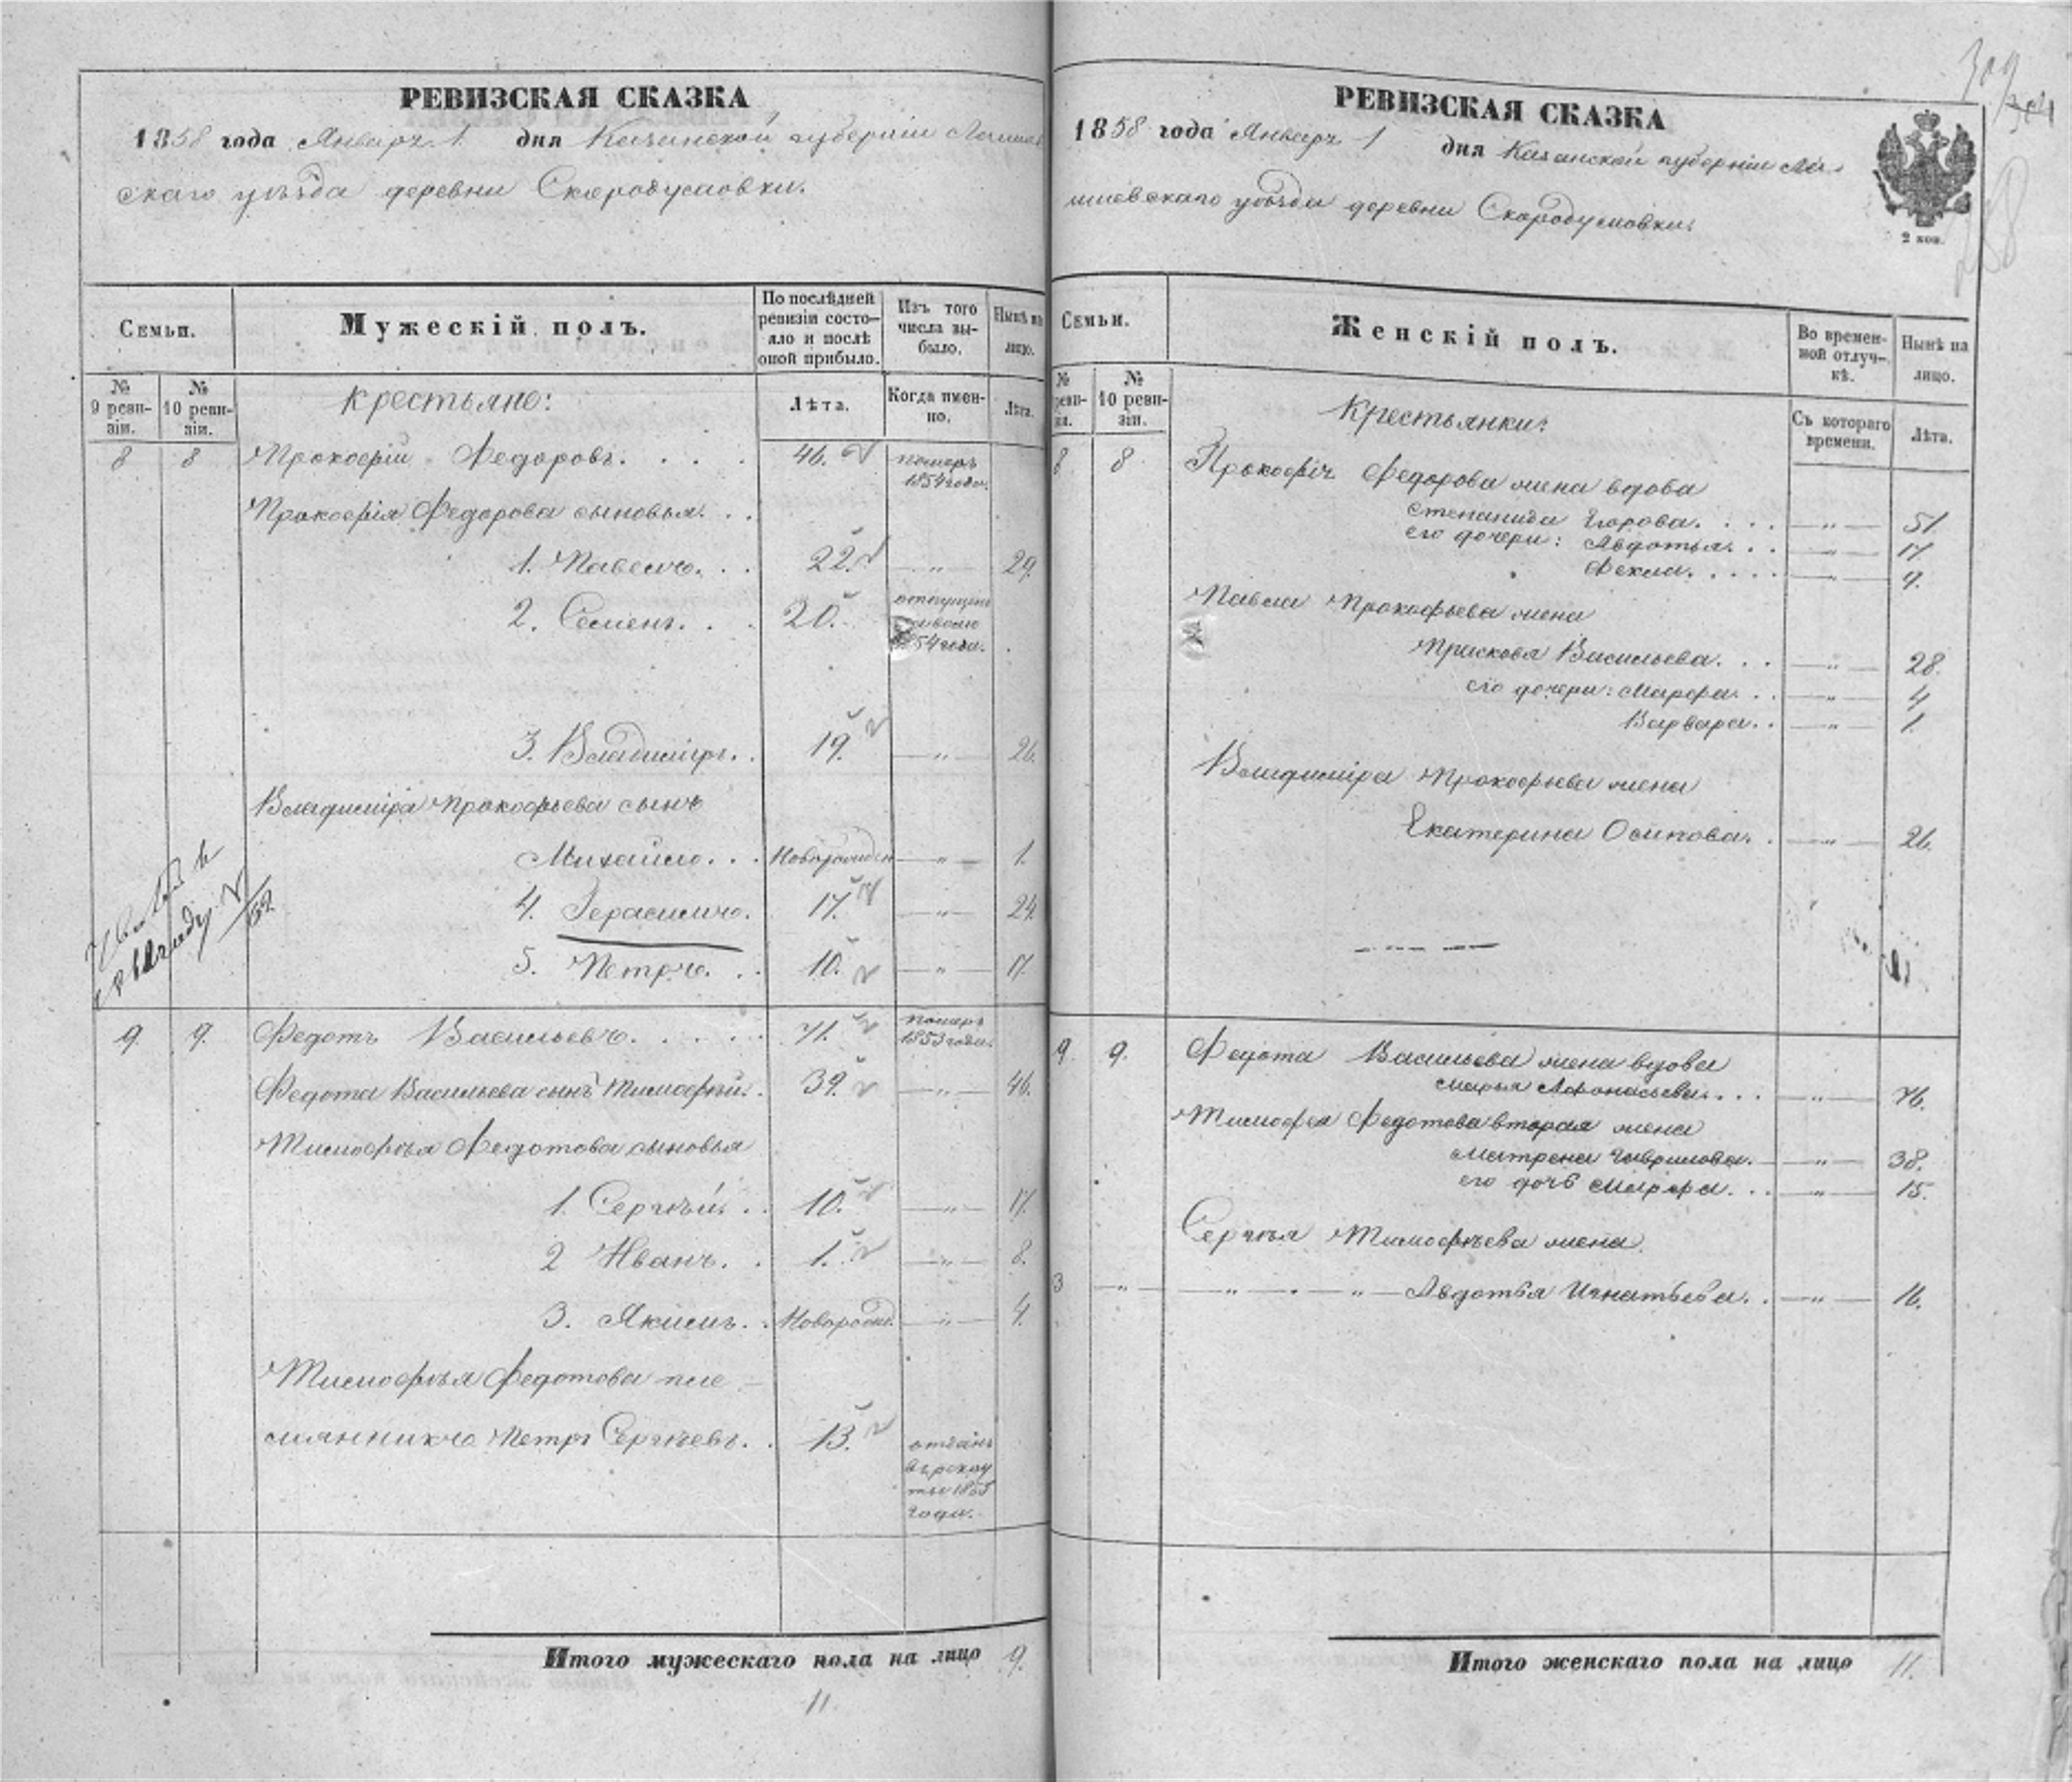 РЕВИЗСКАЯ СКАЗКА
1858 года Января 1 дня Казанской губерніи Лаишев
скаго уѣзда деревни Скородумовки.
Семьи.
Мужескій полъ.
По послѣдней ревизіи состо-
яло и послѣ оной прибыло.
Изъ того числа вы-
было.
Нынѣ на лицо.
№ 9 реви-
зіи.
№ 10 реви-
зіи.
Крестьяне:
Лѣта.
Когда имен-
но.
Лѣта.
8 8 Прокофій Федоровъ. . . . 46. померъ
1854 года.
Прокофія Федорова сыновья. . .
1. Павелъ. . . 22. —"— 29.
2. Семенъ. . . 20. отпущенъ
на волю
1854 года.
3. Владиміръ. . 19. —"— 26.
Владиміра Прокофьева сынъ
Михайло. . . Новорожден —"— 1.
4. Герасимъ. 17. —"— 24.
5. Петръ. . . 10. —"— 17.
9. 9. Федотъ Васильевъ. . . . . 71. померъ
1853 года.
Федота Васильева сынъ Тимофѣй. . 39. —"— 46.
Тимофѣя Федотова сыновья
1. Сергѣй. . . 10. —"— 17.
2 Иванъ. . 1. —"— 8.
3. Якимъ. . Новорожд. —"— 4.
Тимофѣя Федотова пле-
мянникъ Петръ Сергѣевъ. . 13. отданъ
въ рекру
ты 1855
года.
Итого мужескаго пола на лицо 9.
11.
РЕВИЗСКАЯ СКАЗКА
1858 года Января 1 дня Казанской губерніи Ла-
ишевскаго уѣзда деревни Скородумовки.
2 коп.
Семьи.
Женскій полъ.
Во времен-
ной отлуч-
кѣ.
Нынѣ на лицо.
№ реви-
зіи.
№ 10 реви-
зіи.
Крестьянки:
Съ котораго времени.
Лѣта.
8. 8. Прокофія Федорова жена вдова
Степанида Егорова. . . . —"— 51.
его дочери: Авдотья. . . —"— 17
Фекла. . . . . —"— 9.
Павла Прокофьева жена
Прасковья Васильева. . . —"— 28.
его дочери: Марфа. . . —"— 4
Варвара. . —"— 1.
Владиміра Прокофьева жена
Екатерина Осипова. . —"— 26.
9. 9. Федота Васильева жена вдова
Марья Афонасьева. . . . —"— 76.
Тимофея Федотова вторая жена
Матрена Гаврилова. —"— 38.
его дочь Марфа. . . —"— 15.
Сергѣя Тимофѣева жена
3 —"— —"— " —"— Авдотья Игнатьева. . —"— 16.
Итого женскаго пола на лицо 11.